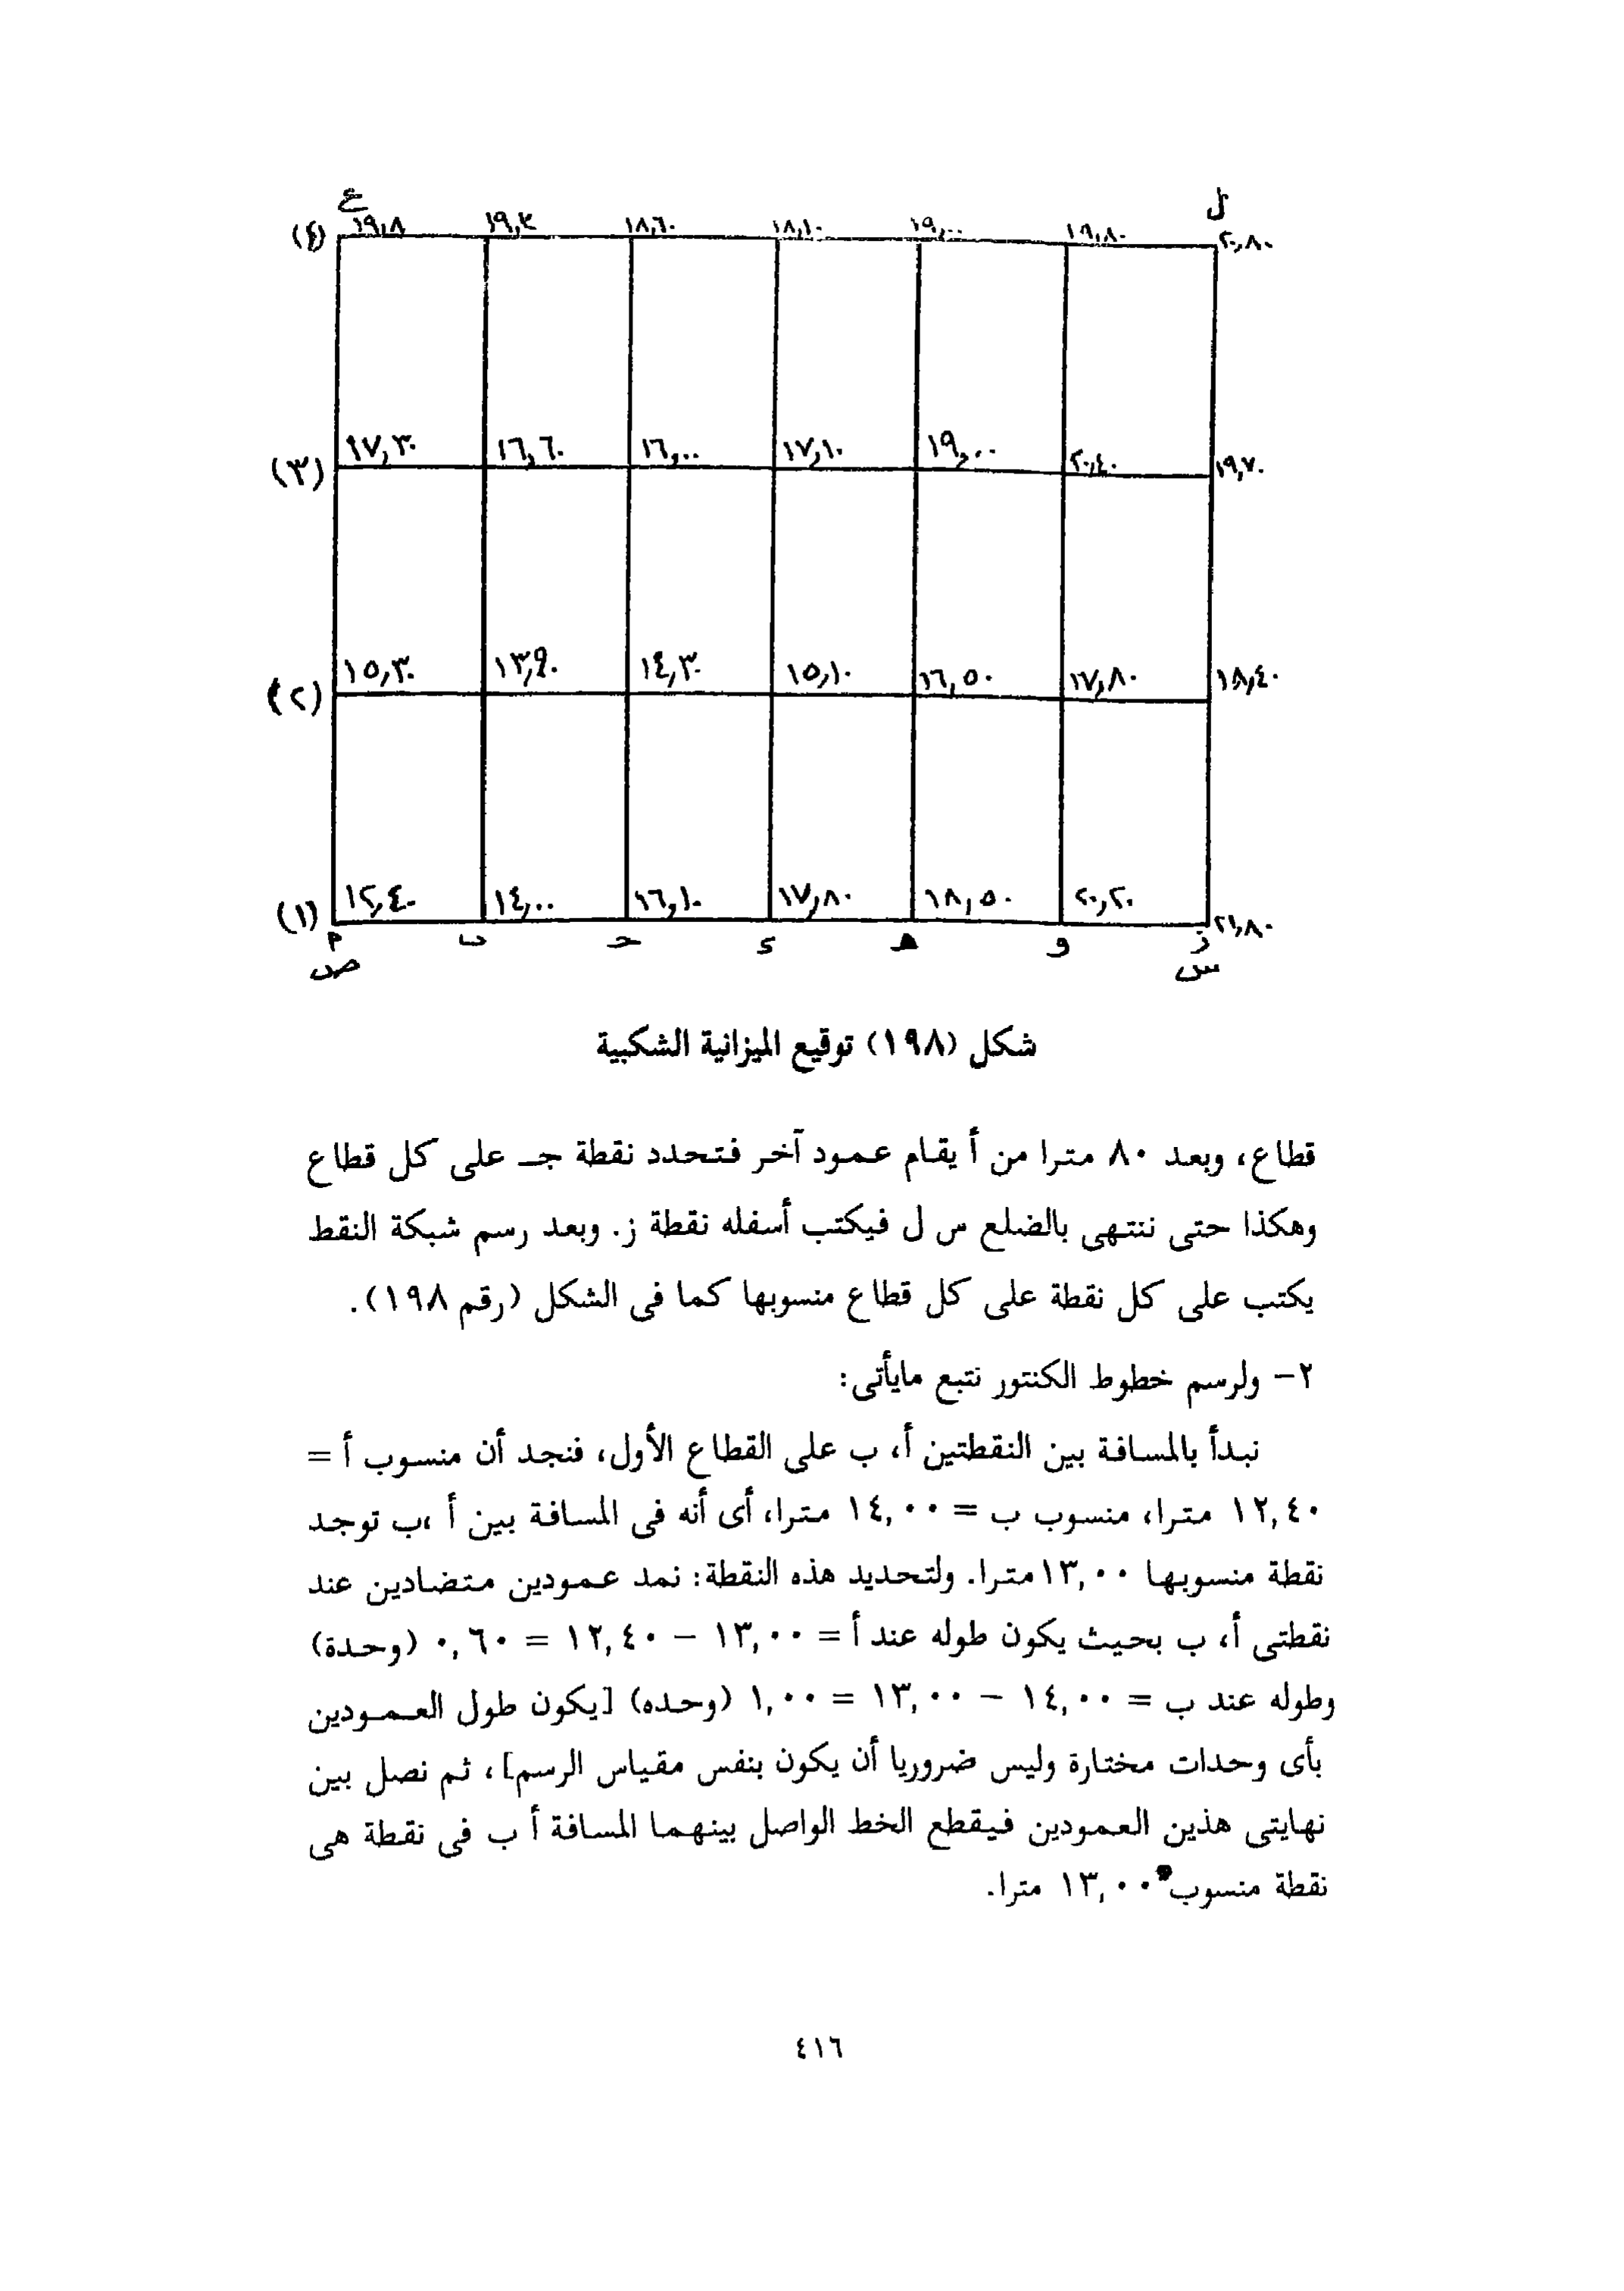 ع ل
(٤) ١٩,٨ ١٩,٣ ١٨,٦٠ ١٨,١٠ ١٩,٠٠ ١٩,٨٠ ٢٠,٨٠
(٣) ٩٧,٣٠ ١٦,٦٠ ١٦,٠٠ ١٧,١٠ ١٩,٠٠ ٢٠,٤٠ ١٩,٧٠
(٢) ١٥,٣٠ ١٣,٩٠ ١٤,٣٠ ١٥,١٠ ١٦,٥٠ ١٧,٨٠ ١٨,٤٠
(١) ١٢,٤٠ ١٤,٠٠ ١٦,١٠ ١٧,٨٠ ١٨,٥٠ ٢٠,٢٠ ٢١,٨٠
م ب ح د ه و ز
ص س
شكل (١٩٨) توقيع الميزانية الشكبية
قطاع، وبعد ٨٠ مترا من أ يقام عمود آخر فتحدد نقطة جـ على كل قطاع
وهكذا حتى ننتهى بالضلع س ل فيكتب أسفله نقطة ز. وبعد رسم شبكة النقط
يكتب على كل نقطة على كل قطاع منسوبها كما فى الشكل (رقم ١٩٨).
٢- ولرسم خطوط الكنتور نتبع مايأتى:
نبدأ بالمسافة بين النقطتين أ، ب على القطاع الأول، فنجد أن منسوب أ =
١٢,٤٠ مترا، منسوب ب = ١٤,٠٠ مترا، أى أنه فى المسافة بين أ ،ب توجد
نقطة منسوبها ١٣,٠٠مترا. ولتحديد هذه النقطة: نمد عمودين متضادين عند
نقطتى أ، ب بحيث يكون طوله عند أ = ١٣,٠٠ – ١٢,٤٠ = ٠,٦٠ (وحدة)
وطوله عند ب = ١٤,٠٠ – ١٣,٠٠ = ١,٠٠ (وحده) [يكون طول العمودين
بأى وحدات مختارة وليس ضروريا أن يكون بنفس مقياس الرسم]، ثم نصل بين
نهايتى هذين العمودين فيقطع الخط الواصل بينهما المسافة أ ب فى نقطة هى
نقطة منسوب ١٣,٠٠ مترا.
٤١٦